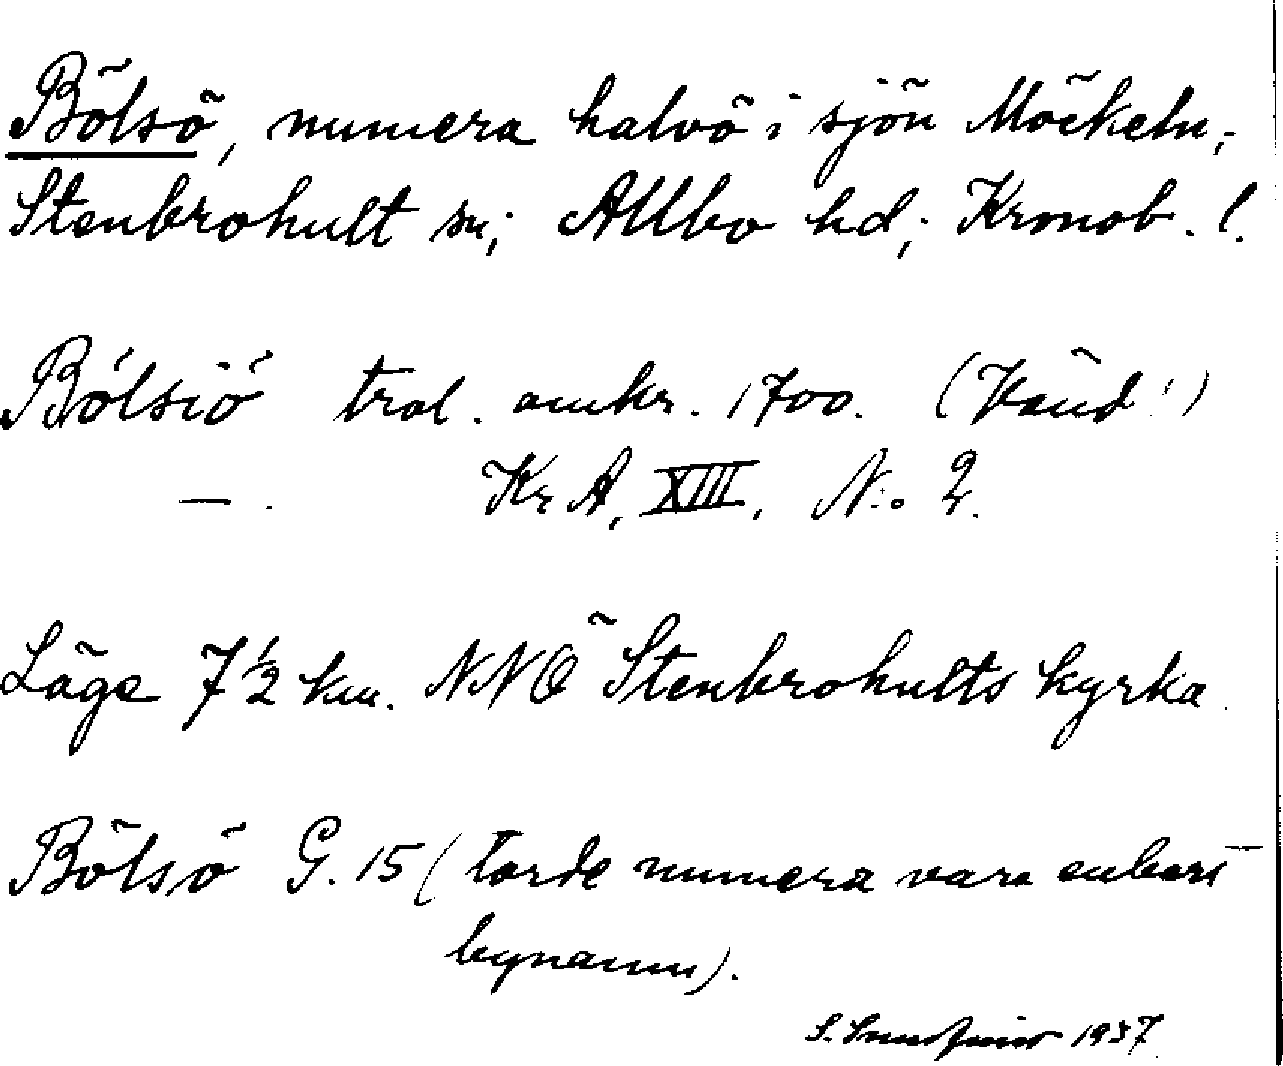 Bölsö, numera halvö i sjön Möckeln,
Stenbrohult sn, Allbo hd, Kronob. l.
Bölsiö trol. omkr. 1700. (Vänd!)
— . KrA, XIII, N:o 2.
Läge 7 1/2 km. NNÖ Stenbrohults kyrka.
Bölsö G. 15 (torde numera vara enbart
bynamn).
S. 1937